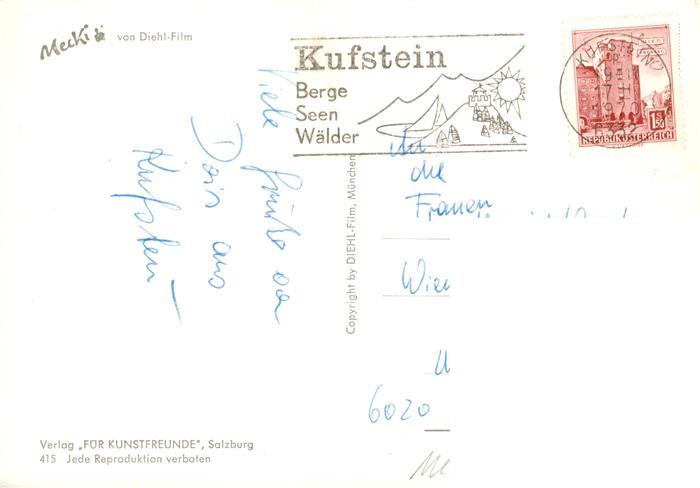 Mecki von Diehl-Film
Kufstein
Berge
Seen
Wälder
KUFSTEIN
REPUBLIK ÖSTERREICH
Viele
Grüße
Doris aus
Kufstein
Copyright by DIEHL-Film, München
An
die
Frauen
Wien
6020
Verlag „FÜR KUNSTFREUNDE", Salzburg
415 Jede Reproduktion verboten